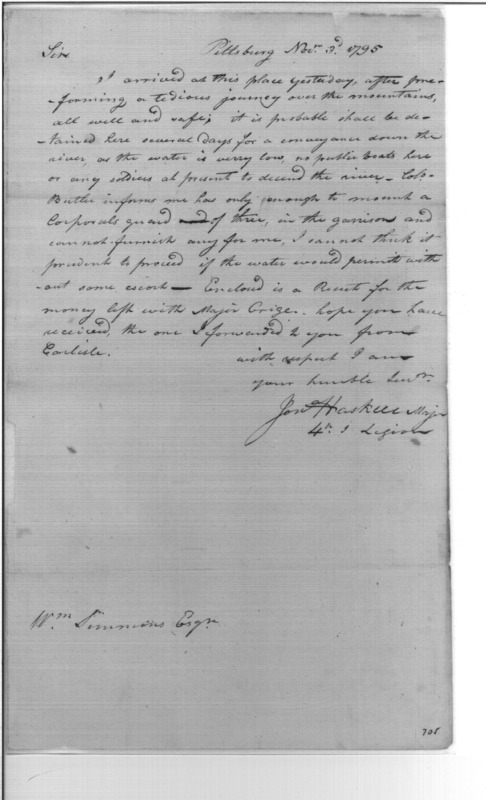 Sir Pittsburg Novr. 3d. 1795
I arrived at this place yesterday, after pre-
-forming a tedious journey over the mountains,
all well and safe; it is probable shall be de-
-tained here several days for a conveyance down the
river, as the water is verry low, no public boats here
or any soldiers at present to decend the river - Colo.
Butler informs me has only enough to mount a
Corporals guard of three, in the garrison and
cannot furnish any for me, I cannot think it
prudent to proceed if the water would permit with
out some escort - Enclosed is a Receit for the
money left with Major Crige. hope you have
received, the one I forwarded to you from
Carlisle.
with respect I am
your humble Servt.
Jona Haskell Major
4th. S Legion
Wm Simmons Esqr
705